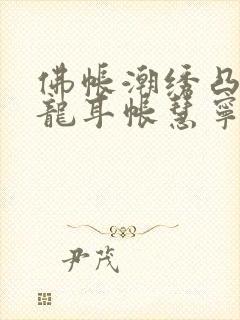 佛帐潮绣凸
龍耳帐慧寧
尹茂